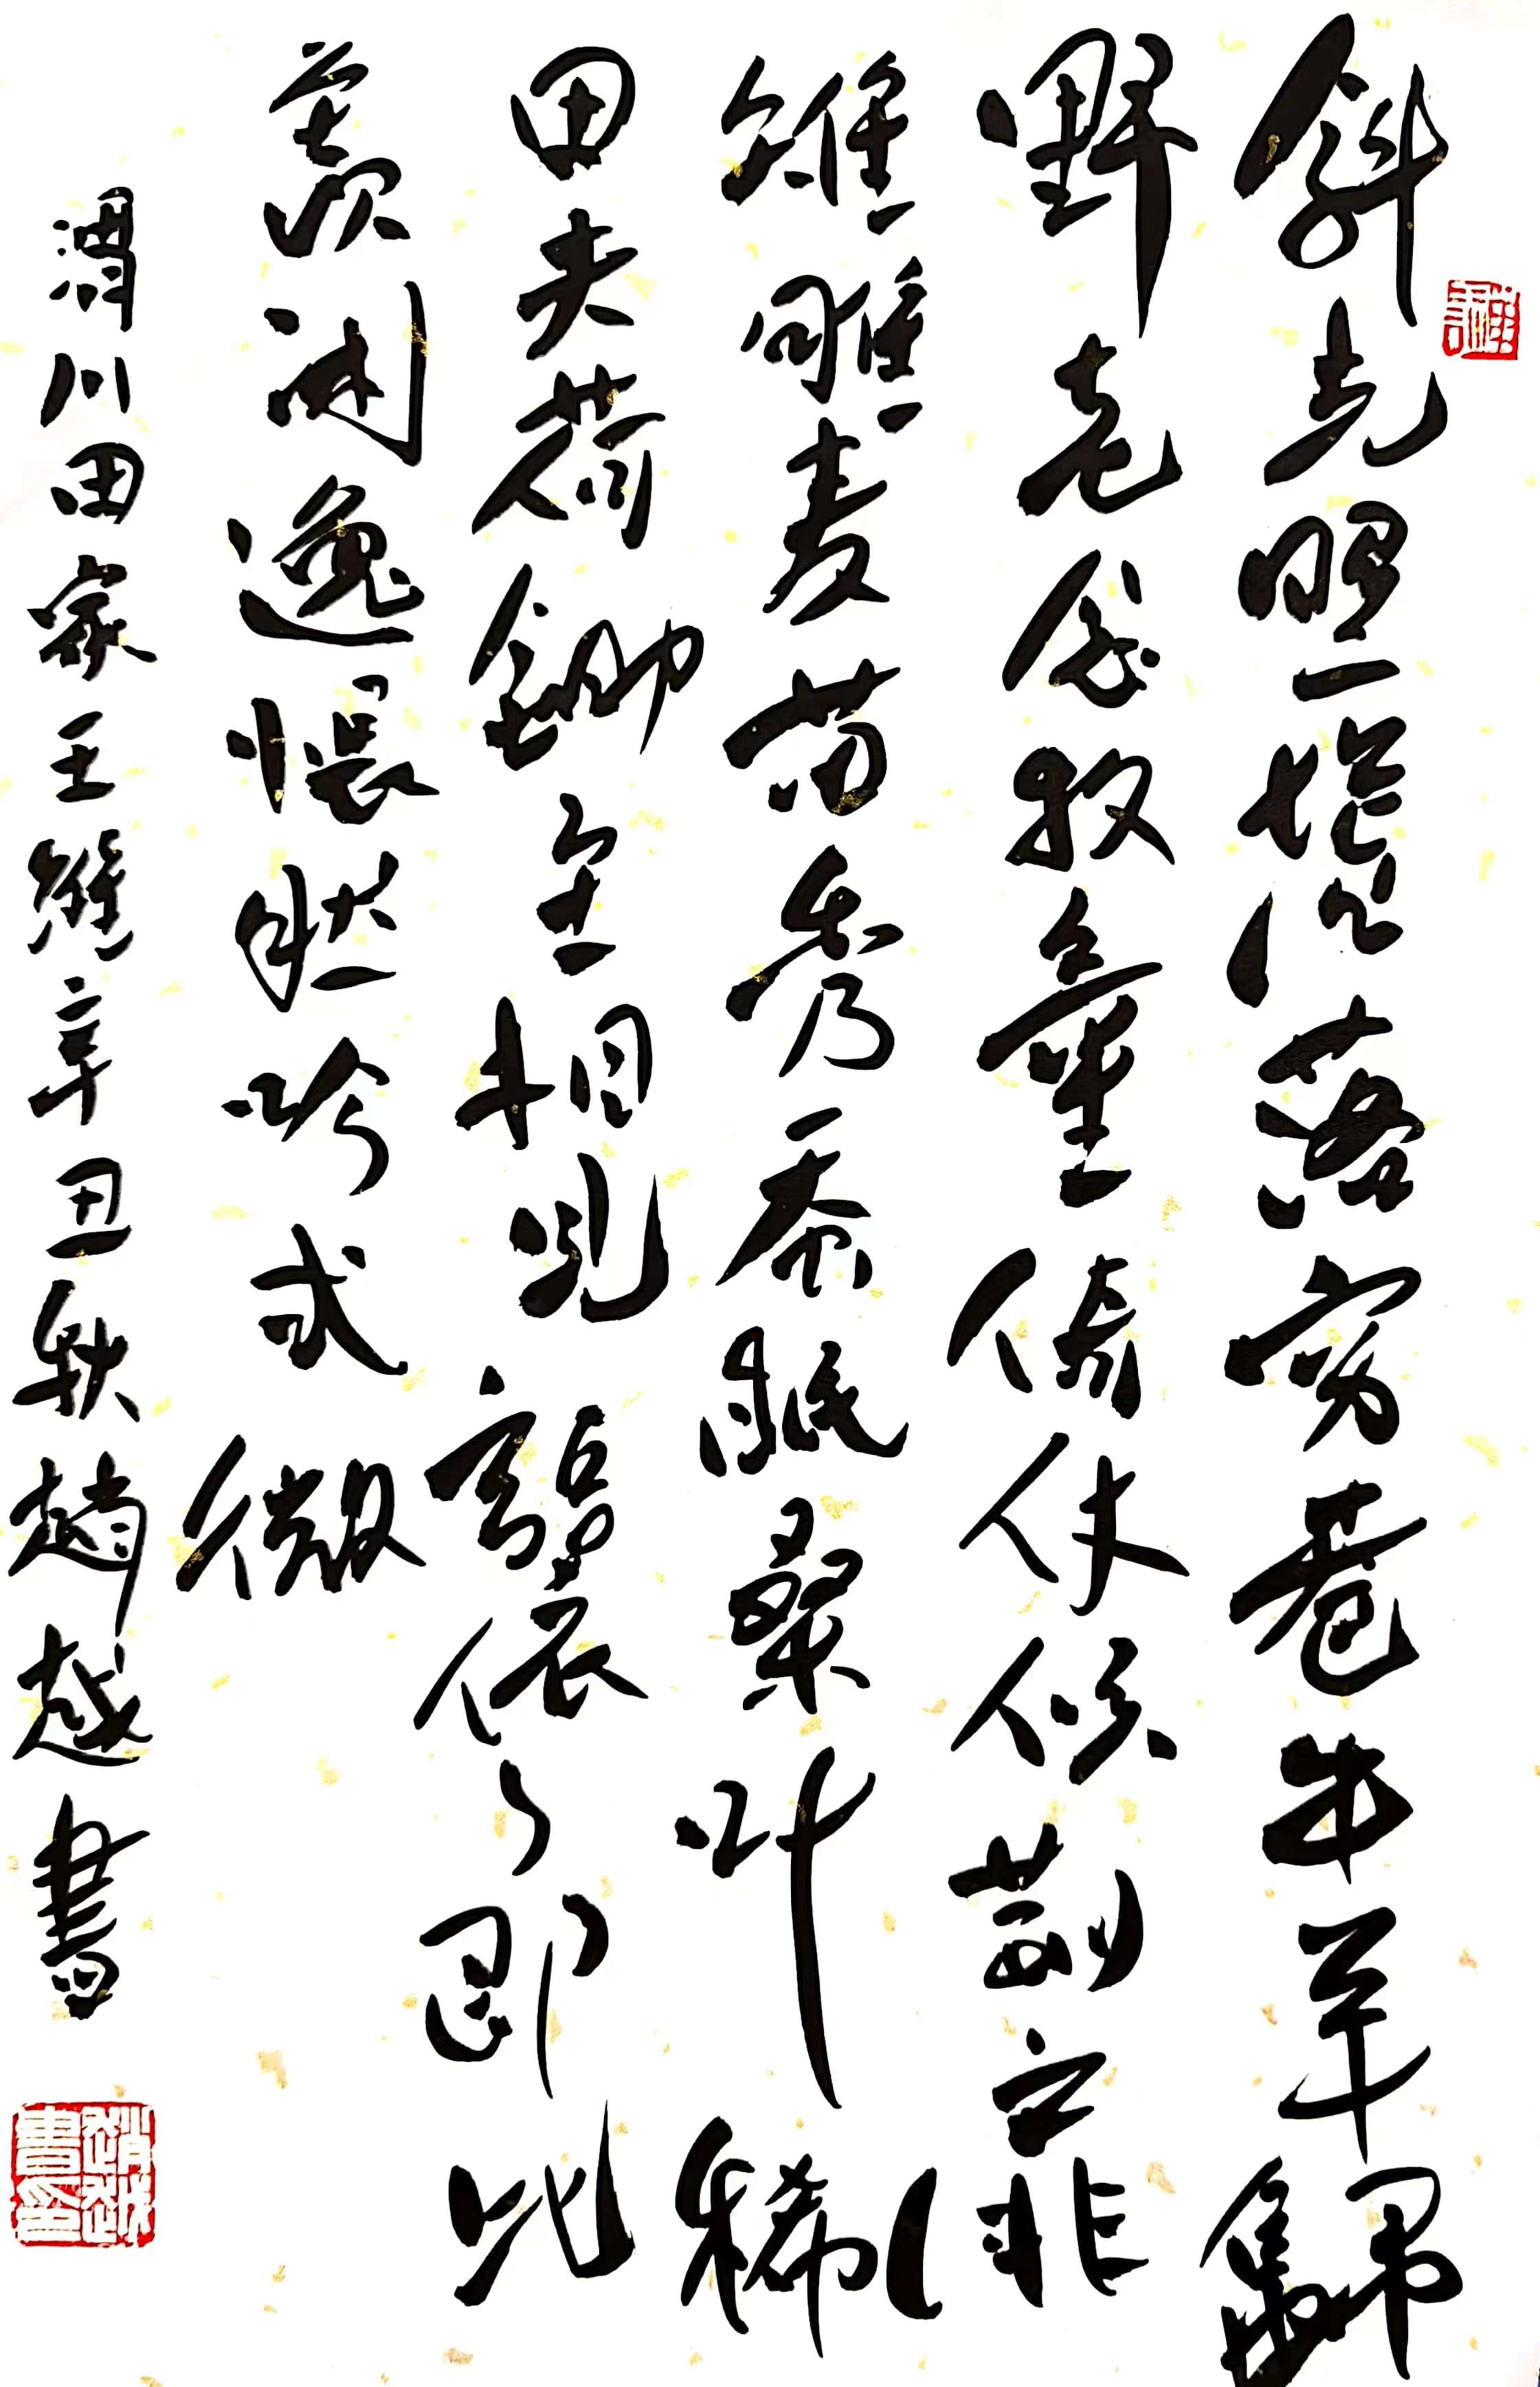 斜光照墟落穷巷牛羊歸
野老念牧童倚杖候荆扉
雉雊麦苗秀蚕眠桑叶稀
田夫荷鋤至相見語依々即此
羡闲逸悵然吟式微
渭川田家王維辛丑秋趙越書
趙越書印